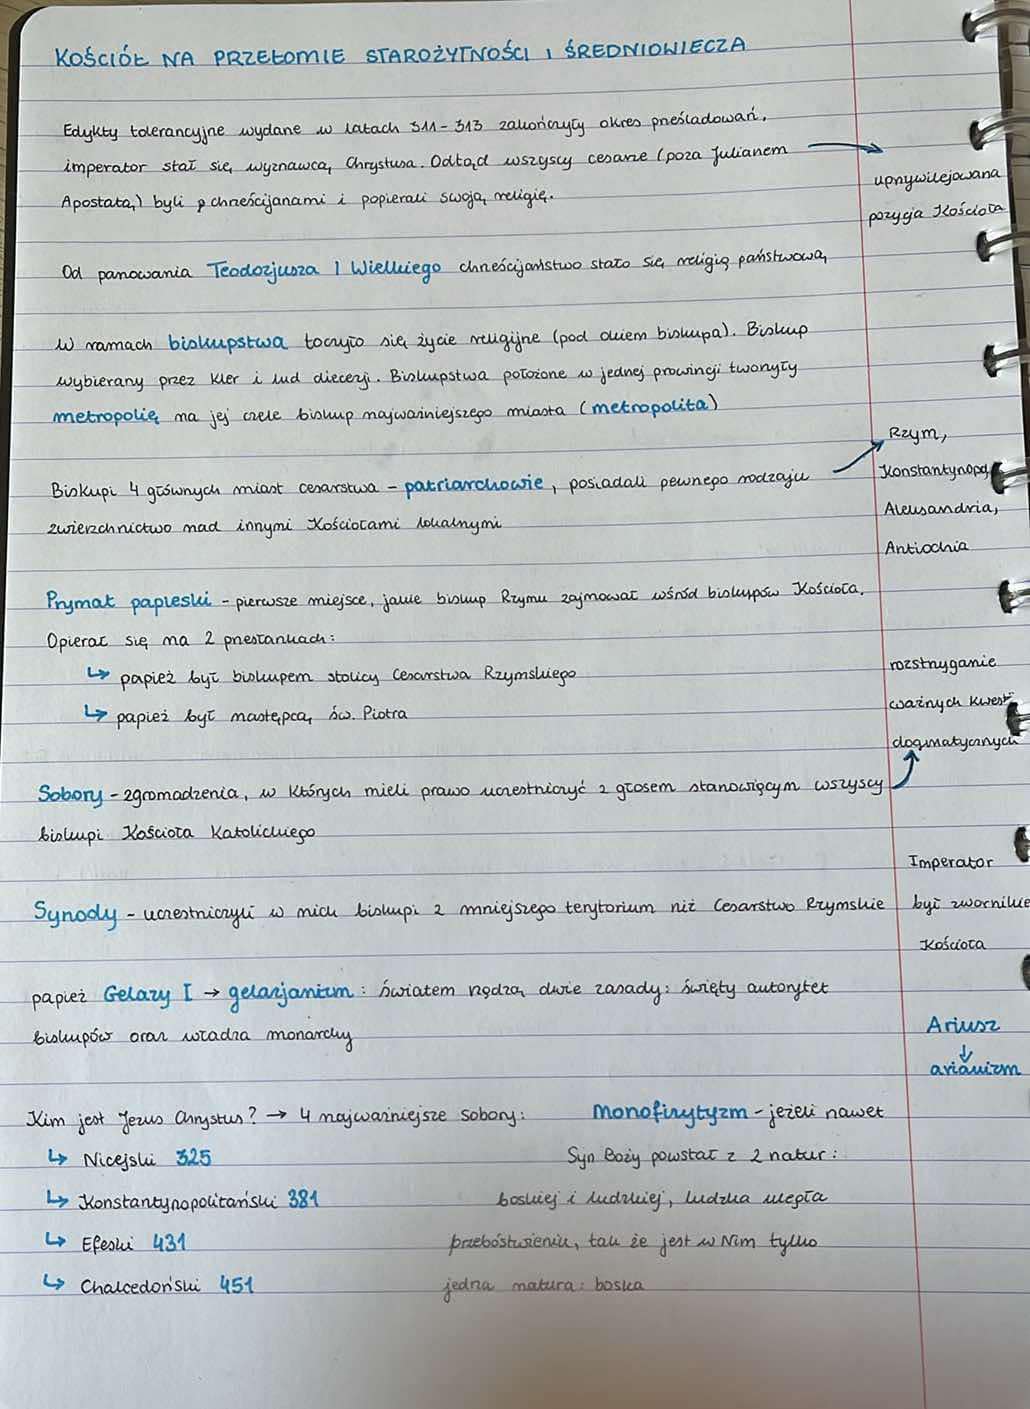 KOŚCIÓŁ NA PRZEŁOMIE STAROŻYTNOŚCI I ŚREDNIOWIECZA
Edykty tolerancyjne wydane w latach 311-313 zakończyły okres prześladowań,
imperator stał się wyznawcą Chrystusa. Odtąd wszyscy cesarze (poza Julianem
Apostatą) byli chrześcijanami i popierali swoją religię.
uprzywilejowana
pozycja Kościoła
Od panowania Teodozjusza I Wielkiego chrześcijaństwo stało się religią państwową
W ramach biskupstwa toczyło się życie religijne (pod okiem biskupa). Biskup
wybierany przez kler i lud diecezji. Biskupstwa położone w jednej prowincji tworzyły
metropolię na jej czele biskup najważniejszego miasta (metropolita)
Biskupi 4 głównych miast cesarstwa - patriarchowie, posiadali pewnego rodzaju
zwierzchnictwo nad innymi Kościołami lokalnymi
Rzym,
Konstantynopol
Aleksandria,
Antiochia
Prymat papieski - pierwsze miejsce, jakie biskup Rzymu zajmował wśród biskupów Kościoła.
Opierał się na 2 przesłankach:
↳ papież był biskupem stolicy Cesarstwa Rzymskiego
↳ papież był następcą św. Piotra
Sobory - zgromadzenia, w których mieli prawo uczestniczyć z głosem stanowiącym wszyscy
biskupi Kościoła Katolickiego
rozstrzyganie
ważnych kwestii
dogmatycznych
Synody - uczestniczyli w nich biskupi z mniejszego terytorium niż Cesarstwo Rzymskie
Imperator
był zwornikiem
Kościoła
papież Gelazy I → gelazjanizm: światem rządzą dwie zasady: święty autorytet
biskupów oraz władza monarchy
Ariusz
↓
arianizm
Kim jest Jezus Chrystus? → 4 najważniejsze sobory:
↳ Nicejski 325
↳ Konstantynopolitański 381
↳ Efeski 431
↳ Chalcedoński 451
Monofizytyzm - jeżeli nawet
Syn Boży powstał z 2 natur:
boskiej i ludzkiej, ludzka uległa
przebóstwieniu, tak że jest w Nim tylko
jedna natura: boska